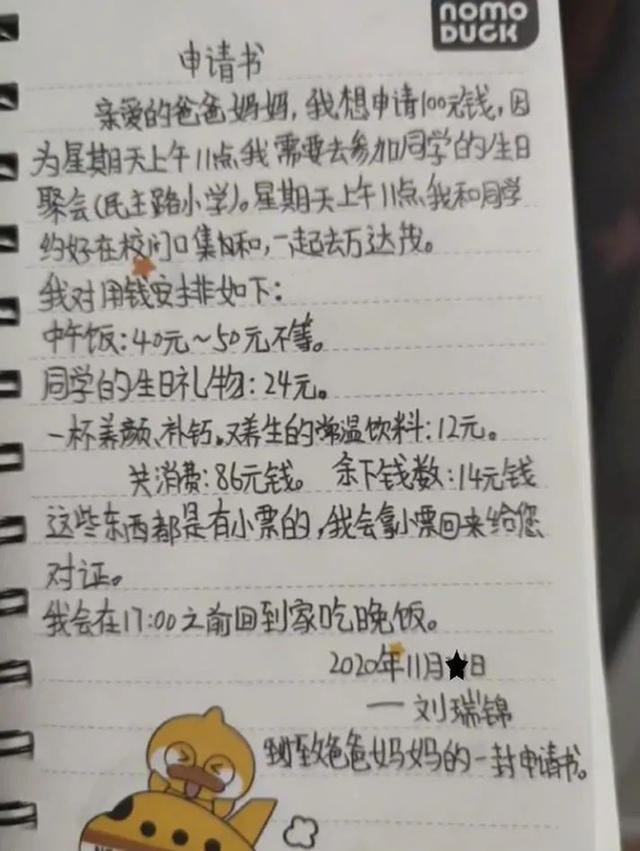 nomo
DUCK
申请书
亲爱的爸爸妈妈，我想申请100元钱，因
为星期天上午11点我需要去参加同学的生日
聚会(民主路小学)。星期天上午11点我和同学
约好在校门口集合和，一起去万达茂。
我对用钱安排如下：
中午饭：40元～50元不等。
同学的生日礼物：24元。
一杯养颜、补钙。又养生的常温饮料：12元。
共消费：86元钱。 余下钱数：14元钱
这些东西都是有小票的，我会拿小票回来给您
对证。
我会在17:00之前回到家吃晚饭。
2020年11月 日
—刘瑞锦
致爸爸妈妈的一封申请书。